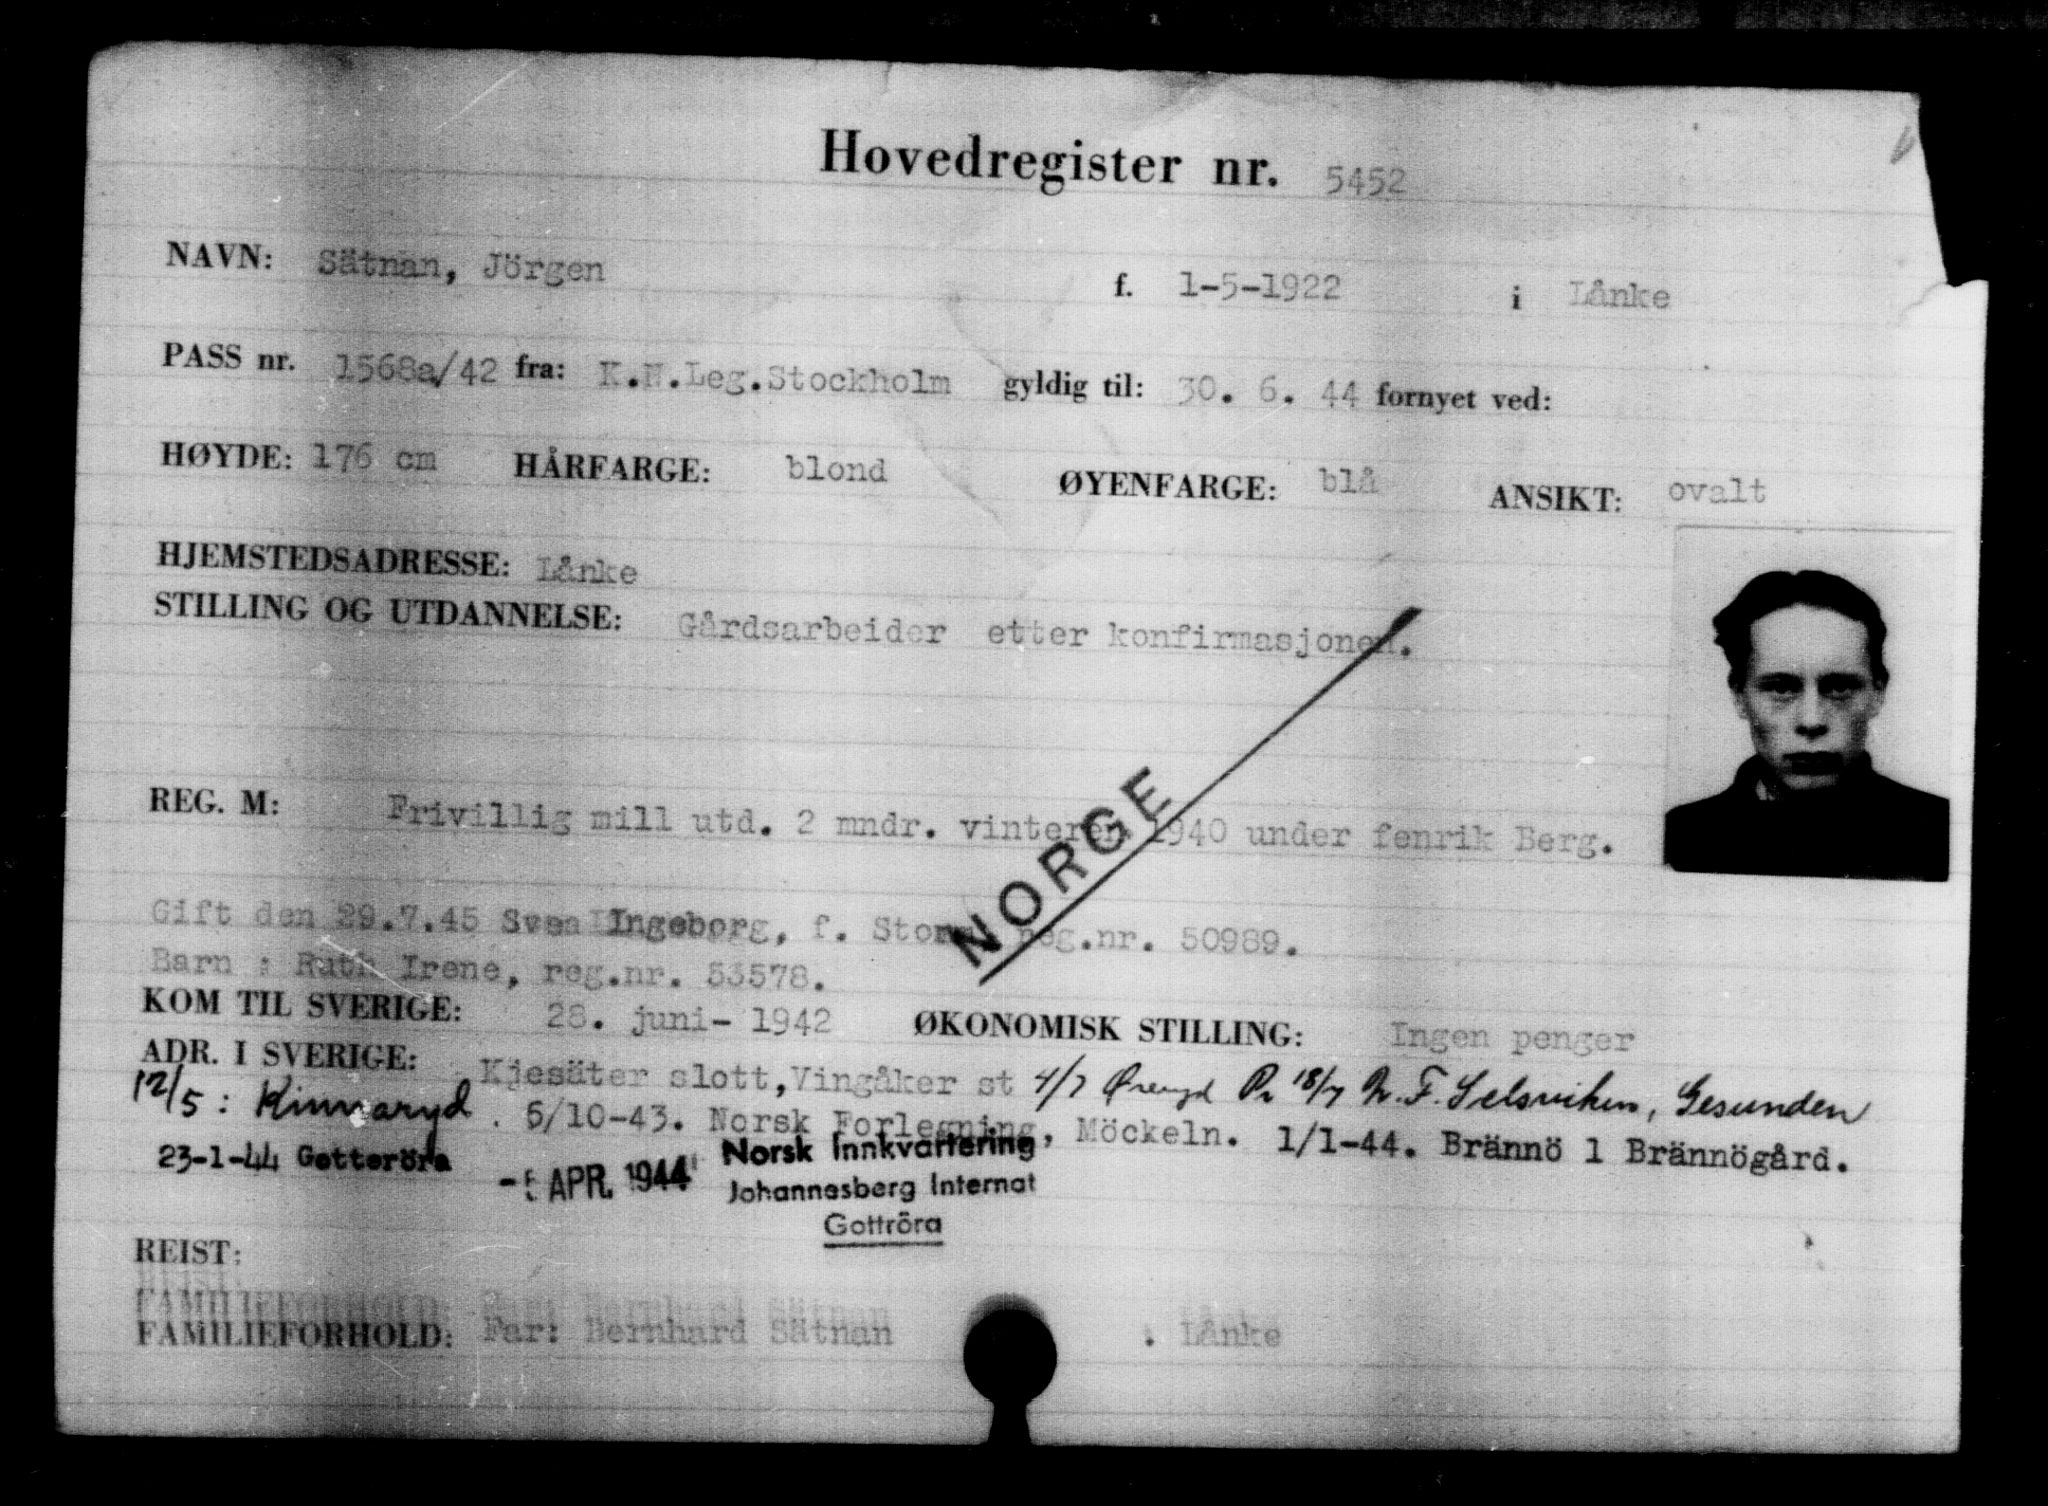 Hovedregister nr. 5452
NAVN: Sätnan, Jörgen f. 1-5-1922 i Lånke
PASS nr. 1568a/42 fra: K.N.Leg.Stockholm gyldig til: 30. 6. 44 fornyet ved:
HØYDE: 176 cm HÅRFARGE: blond ØYENFARGE: blå ANSIKT: ovalt
HJEMSTEDSADRESSE: Lånke
STILLING OG UTDANNELSE: Gårdsarbeider etter konfirmasjonen.
NORGE
REG. M: Frivillig mill utd. 2 mndr. vinteren 1940 under fenrik Berg.
Gift den 29.7.45 Ingeborg, f. reg.nr. 50989.
Barn : Ruth Irene, reg.nr. 53578.
KOM TIL SVERIGE: 28. juni- 1942 ØKONOMISK STILLING: Ingen penger
ADR. I SVERIGE: Kjesäter slott, Vingåker st 4/7 18/7 N.F. Selsviken, Gesunden
12/5: Kinnaryd. 5/10-43. Norsk Forlegning, Möckeln. 1/1-44. Brännö 1 Brännögård.
23-1-44 Gotteröra APR. 1944 Norsk Innkvartering
Johannesberg Internat
Gottröra
REIST:
REIST:
FAMILIEFORHOLD: Far: Bernhard Sätnan
FAMILIEFORHOLD: Far: Bernhard Sätnan . Lånke